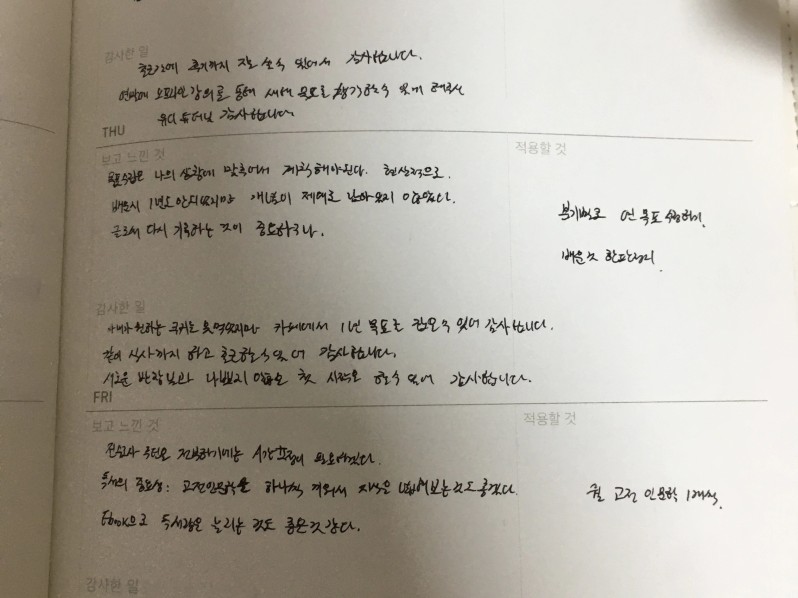 감사한 일
출근전에 복기까지 잘 할수 있어서 감사합니다.
연말에 오프라인 강의를 통해 새해 목표를 생각할수 있게 해주신
유디 튜터님 감사합니다
THU
보고 느낀 것
적용할 것
목표수립은 나의 상황에 맞추어서 계획해야된다. 현실적으로.
배운지 1년도 안되었지만 개념이 제대로 남아있지 않았다.
글로써 다시 기록하는 것이 중요하구나.
복기바탕으로 연 목표 수정하기.
배운것 한판정리
감사한 일
아내가 원하는 쿠키는 못먹었지만 카페에서 1년 목표를 잡을수 있어 감사합니다.
같이 식사까지 하고 출근할수 있어 감사합니다.
새로운 반장님과 나쁘지 않은 첫 시작을 할수 있어 감사합니다.
FRI
보고 느낀 것
적용할 것
전달하기에는 시간 필요하겠다.
독서의 중요성: 고전인문학을 하나씩 끼워서 지식을 넓혀보는것도 좋겠다.
Ebook으로 독서량을 늘리는 것도 좋은것 같다.
월 고전 인문학 1개씩.
감사한 일